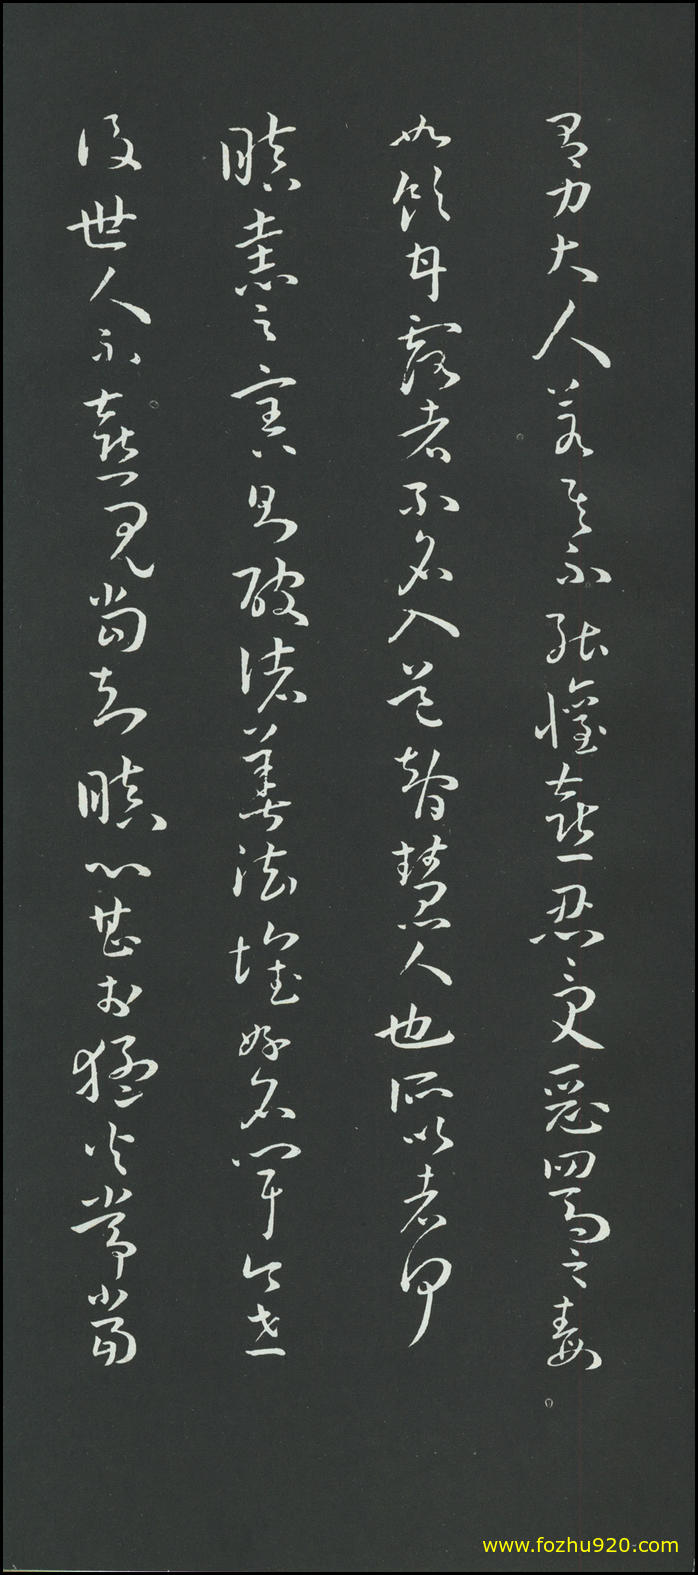 為力大人若其不能懽喜忍受惡罵之毒
如飲甘露者不名入道智慧人也所以者何
瞋恚之害則破諸善法壞好名聞今世
後世人不喜見當知瞋心甚於猛火常當
www.fozhu920.com